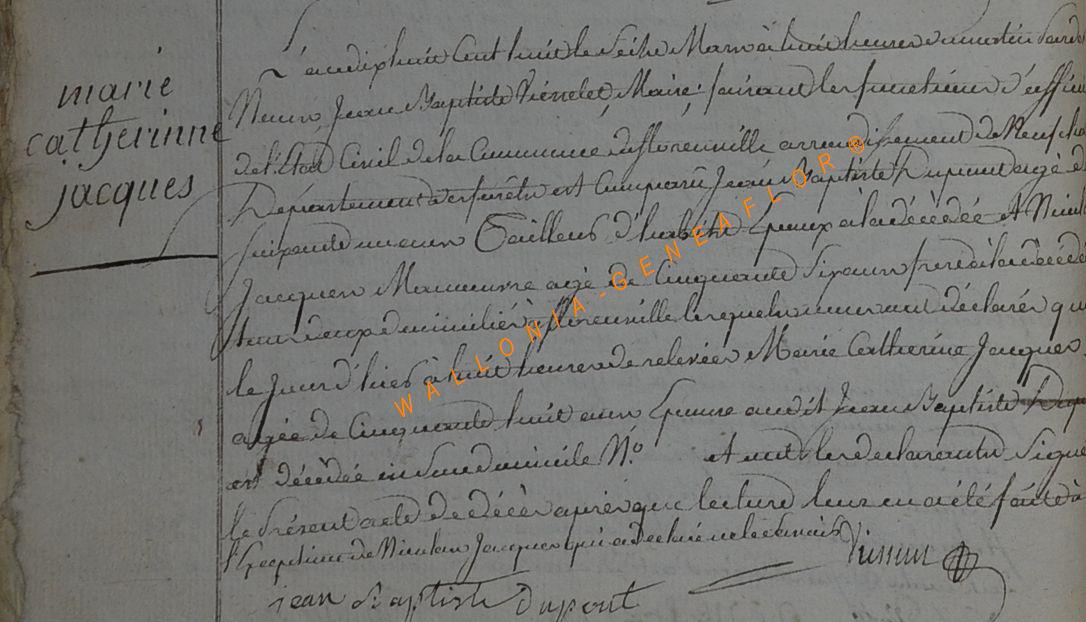 marie
catherinne
jacques
L'an dix huit Cent huit le Seize Mars à huit heures du matin pardev
Nous Jean Baptiste Maire faisant les fonctions d'officie
de l'Etat Civil de la Commune de florenville arrondissement de Neufcha
Département des forêts est Comparu Jean Baptiste Dupont agé de
soixante un ans Tailleur d'habits Epoux à la décédée Et Nicola
Jacques Manoeuvre agé de Cinquante Six ans frere à la décédé
tous deux domiciliés à florenville lesquels nous ont déclarés qu
le Jour d'hier à huit heures de relevées Marie Catherine Jacques
agée de Cinquante huit ans Epouse audit Jean Baptiste Dup
est décédée en son domicile N.o Et ont les declarants Signé
le Présent acte de décès après que lecture leur en a été faite à
l'Exception de Nicolas Jacques qui a declaré ne le Savoir
jean Baptiste dupont
WALLONIA-GENEAFLOR ®